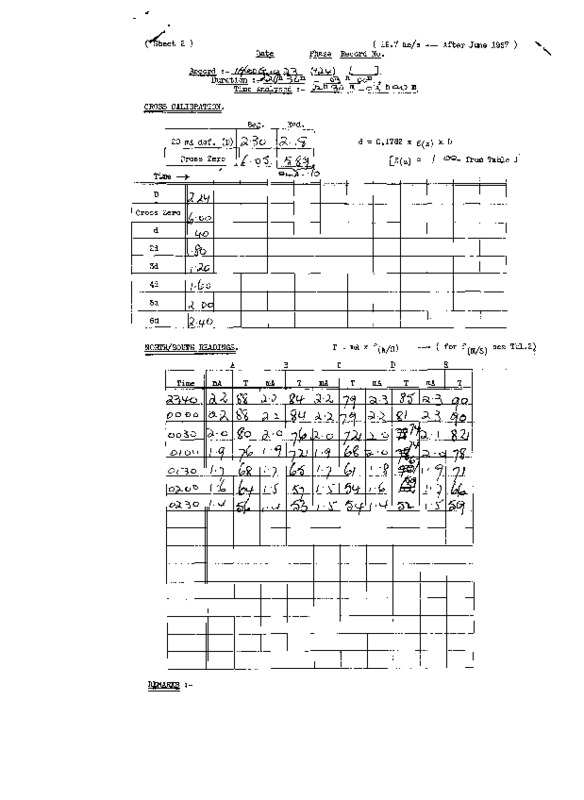 (Sheet 2 ) ( 18.7 mm/s -- After June 1957 )
Date Phase Record No.
Record :- 23 (424) [ ]
Duration :-
Time analysed :-
CROSS CALIBRATION.
Beg. End.
20 ms def. (D) 2.30 d = 0.1782 x g(z) x D
Cross Zero 6.05 5.89 [g(z) = from Table ]
Time →
D 2.24
Cross Zero 6.00
d 40
2d .80
3d 1.20
4d 1.60
5d 2.00
6d 2.40
NORTH/SOUTH READINGS. T = md x f(N/S) -- ( for f(N/S) see Tbl.2)
A B C D E
Time md T md T md T md T md T
2340 2.2 88 2.2 84 2.2 79 2.3 85 2.3 90
0000 2.2 88 2.2 84 2.2 79 2.2 81 2.3 90
0030 2.0 80 2.0 76 2.0 72 2.0 74 2.1 82
0100 1.9 76 1.9 72 1.9 68 2.0 74 2.0 78
0130 1.7 68 1.7 65 1.7 61 1.8 1.9 71
0200 1.6 64 1.5 57 1.5 54 1.6 59 1.7 66
0230 1.4 56 1.4 53 1.5 54 1.4 52 1.5 59
REMARKS :-